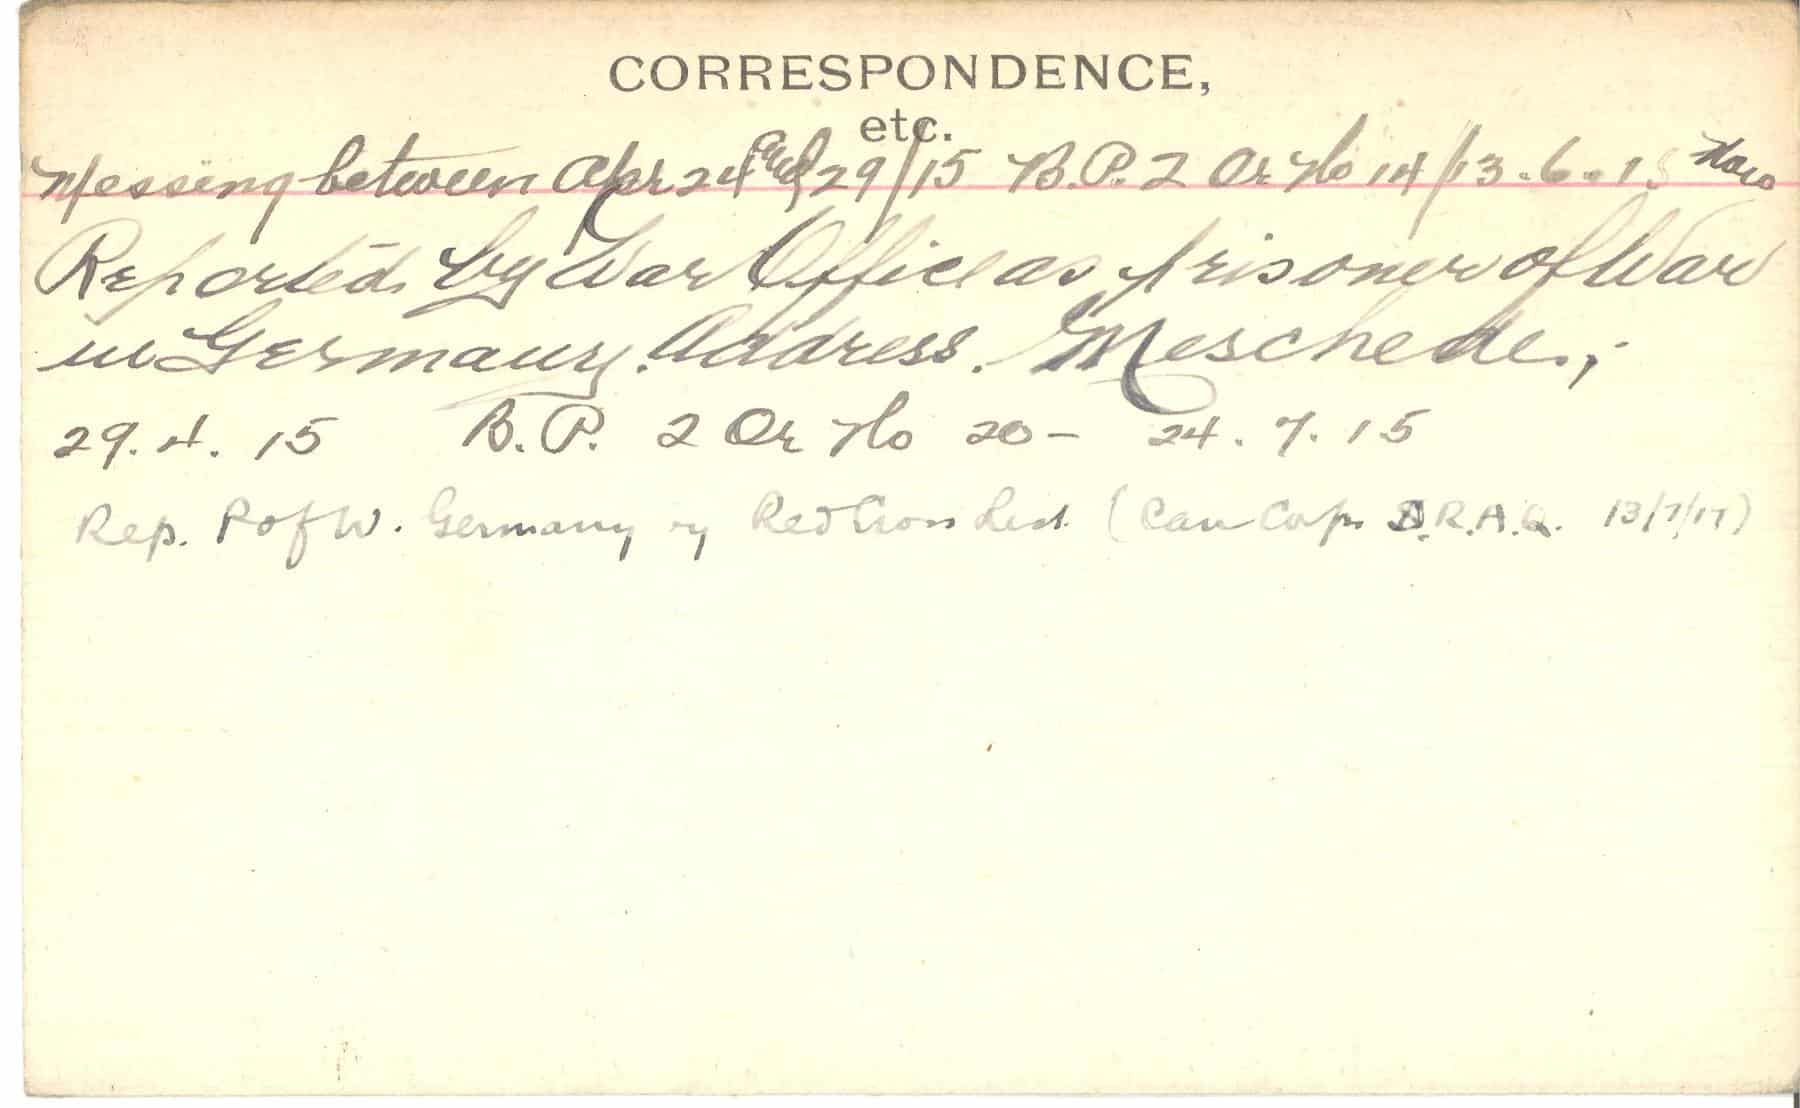 CORRESPONDENCE,
etc.
Missing between Apr 24 and 29/15 B.P. 2 Or No 14/13.6.15 Now
Reported by War Office as prisoner of War
in Germany. Address. Meschede.,
29.4.15 B.P. 2 Or No 20 - 24.7.15
Rep. P of W. Germany Red Cross List (Can Corps R.A.